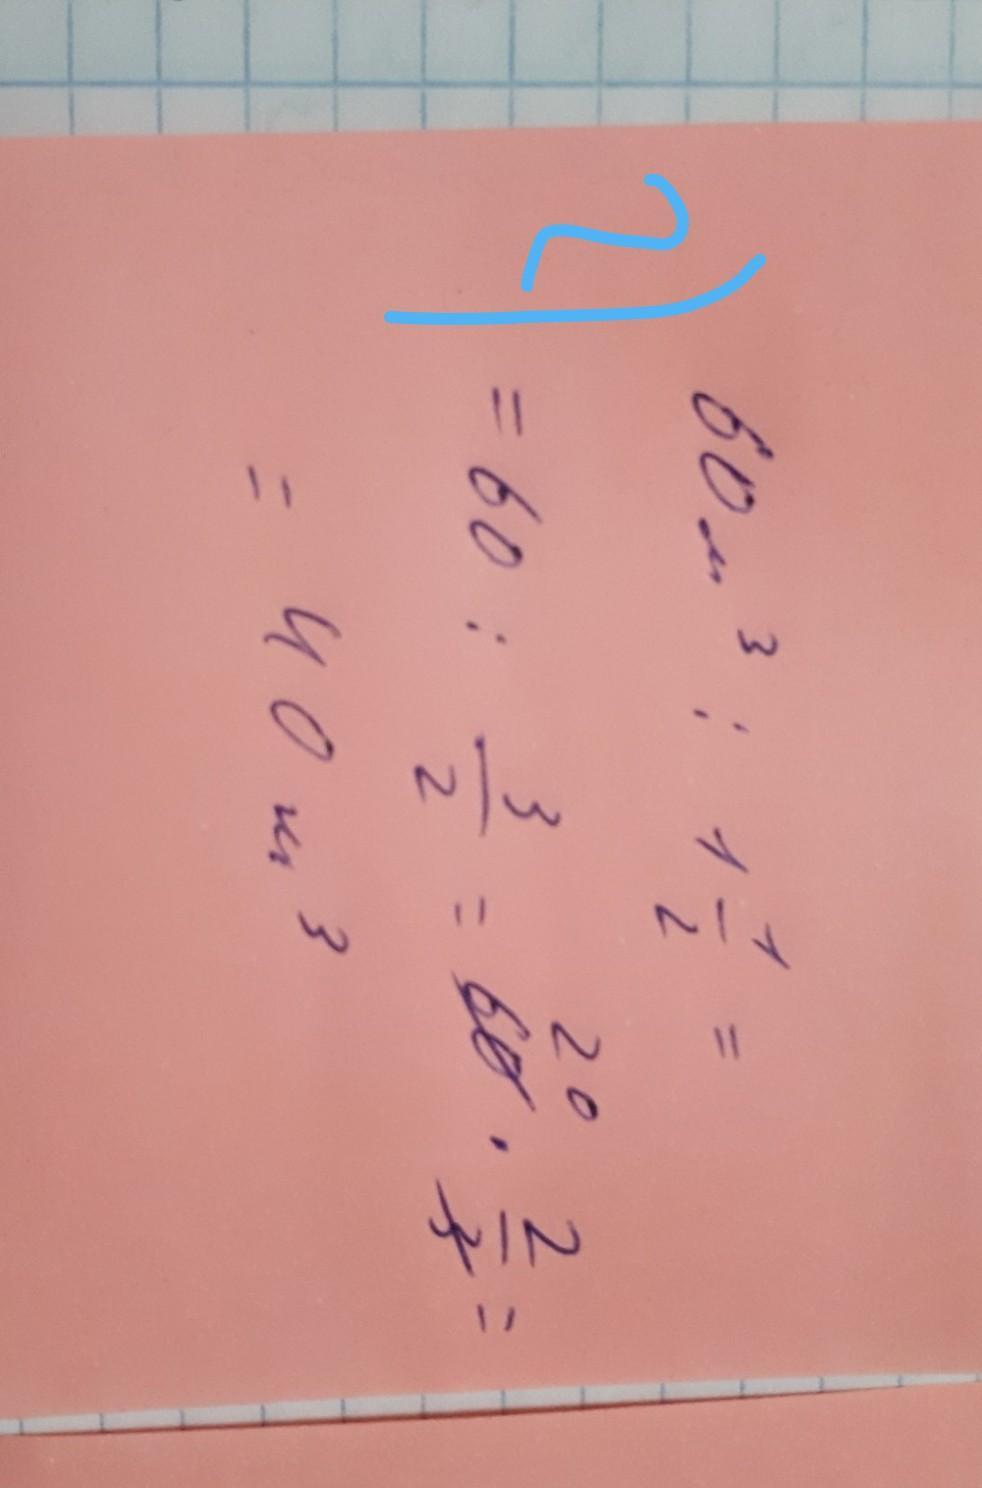 60 м³ : 1 1/2 =
= 60 : 3/2 = 60 20 · 2/3 =
= 40 м³